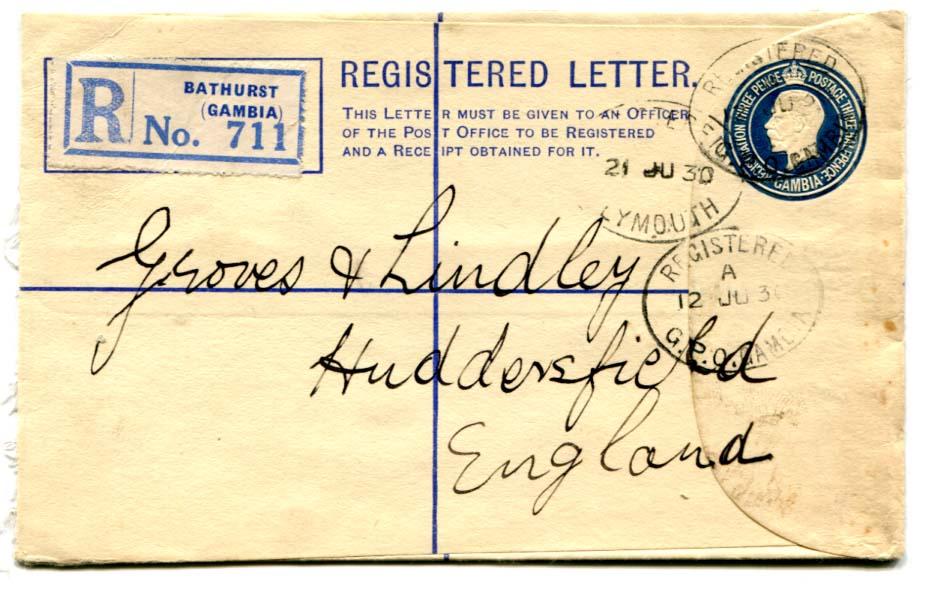 R
BATHURST
(GAMBIA)
No. 711
REGISTERED LETTER.
THIS LETTER MUST BE GIVEN TO AN OFFICER
OF THE POST OFFICE TO BE REGISTERED
AND A RECEIPT OBTAINED FOR IT.
REGISTERED
G.P.O. GAMBIA
REGISTRATION THREE PENCE POSTAGE THREE HALFPENCE
GAMBIA
21 JU 30
PLYMOUTH
REGISTERED
A
12 JU 30
G.P.O. GAMBIA
Groves & Lindley
Huddersfield
England